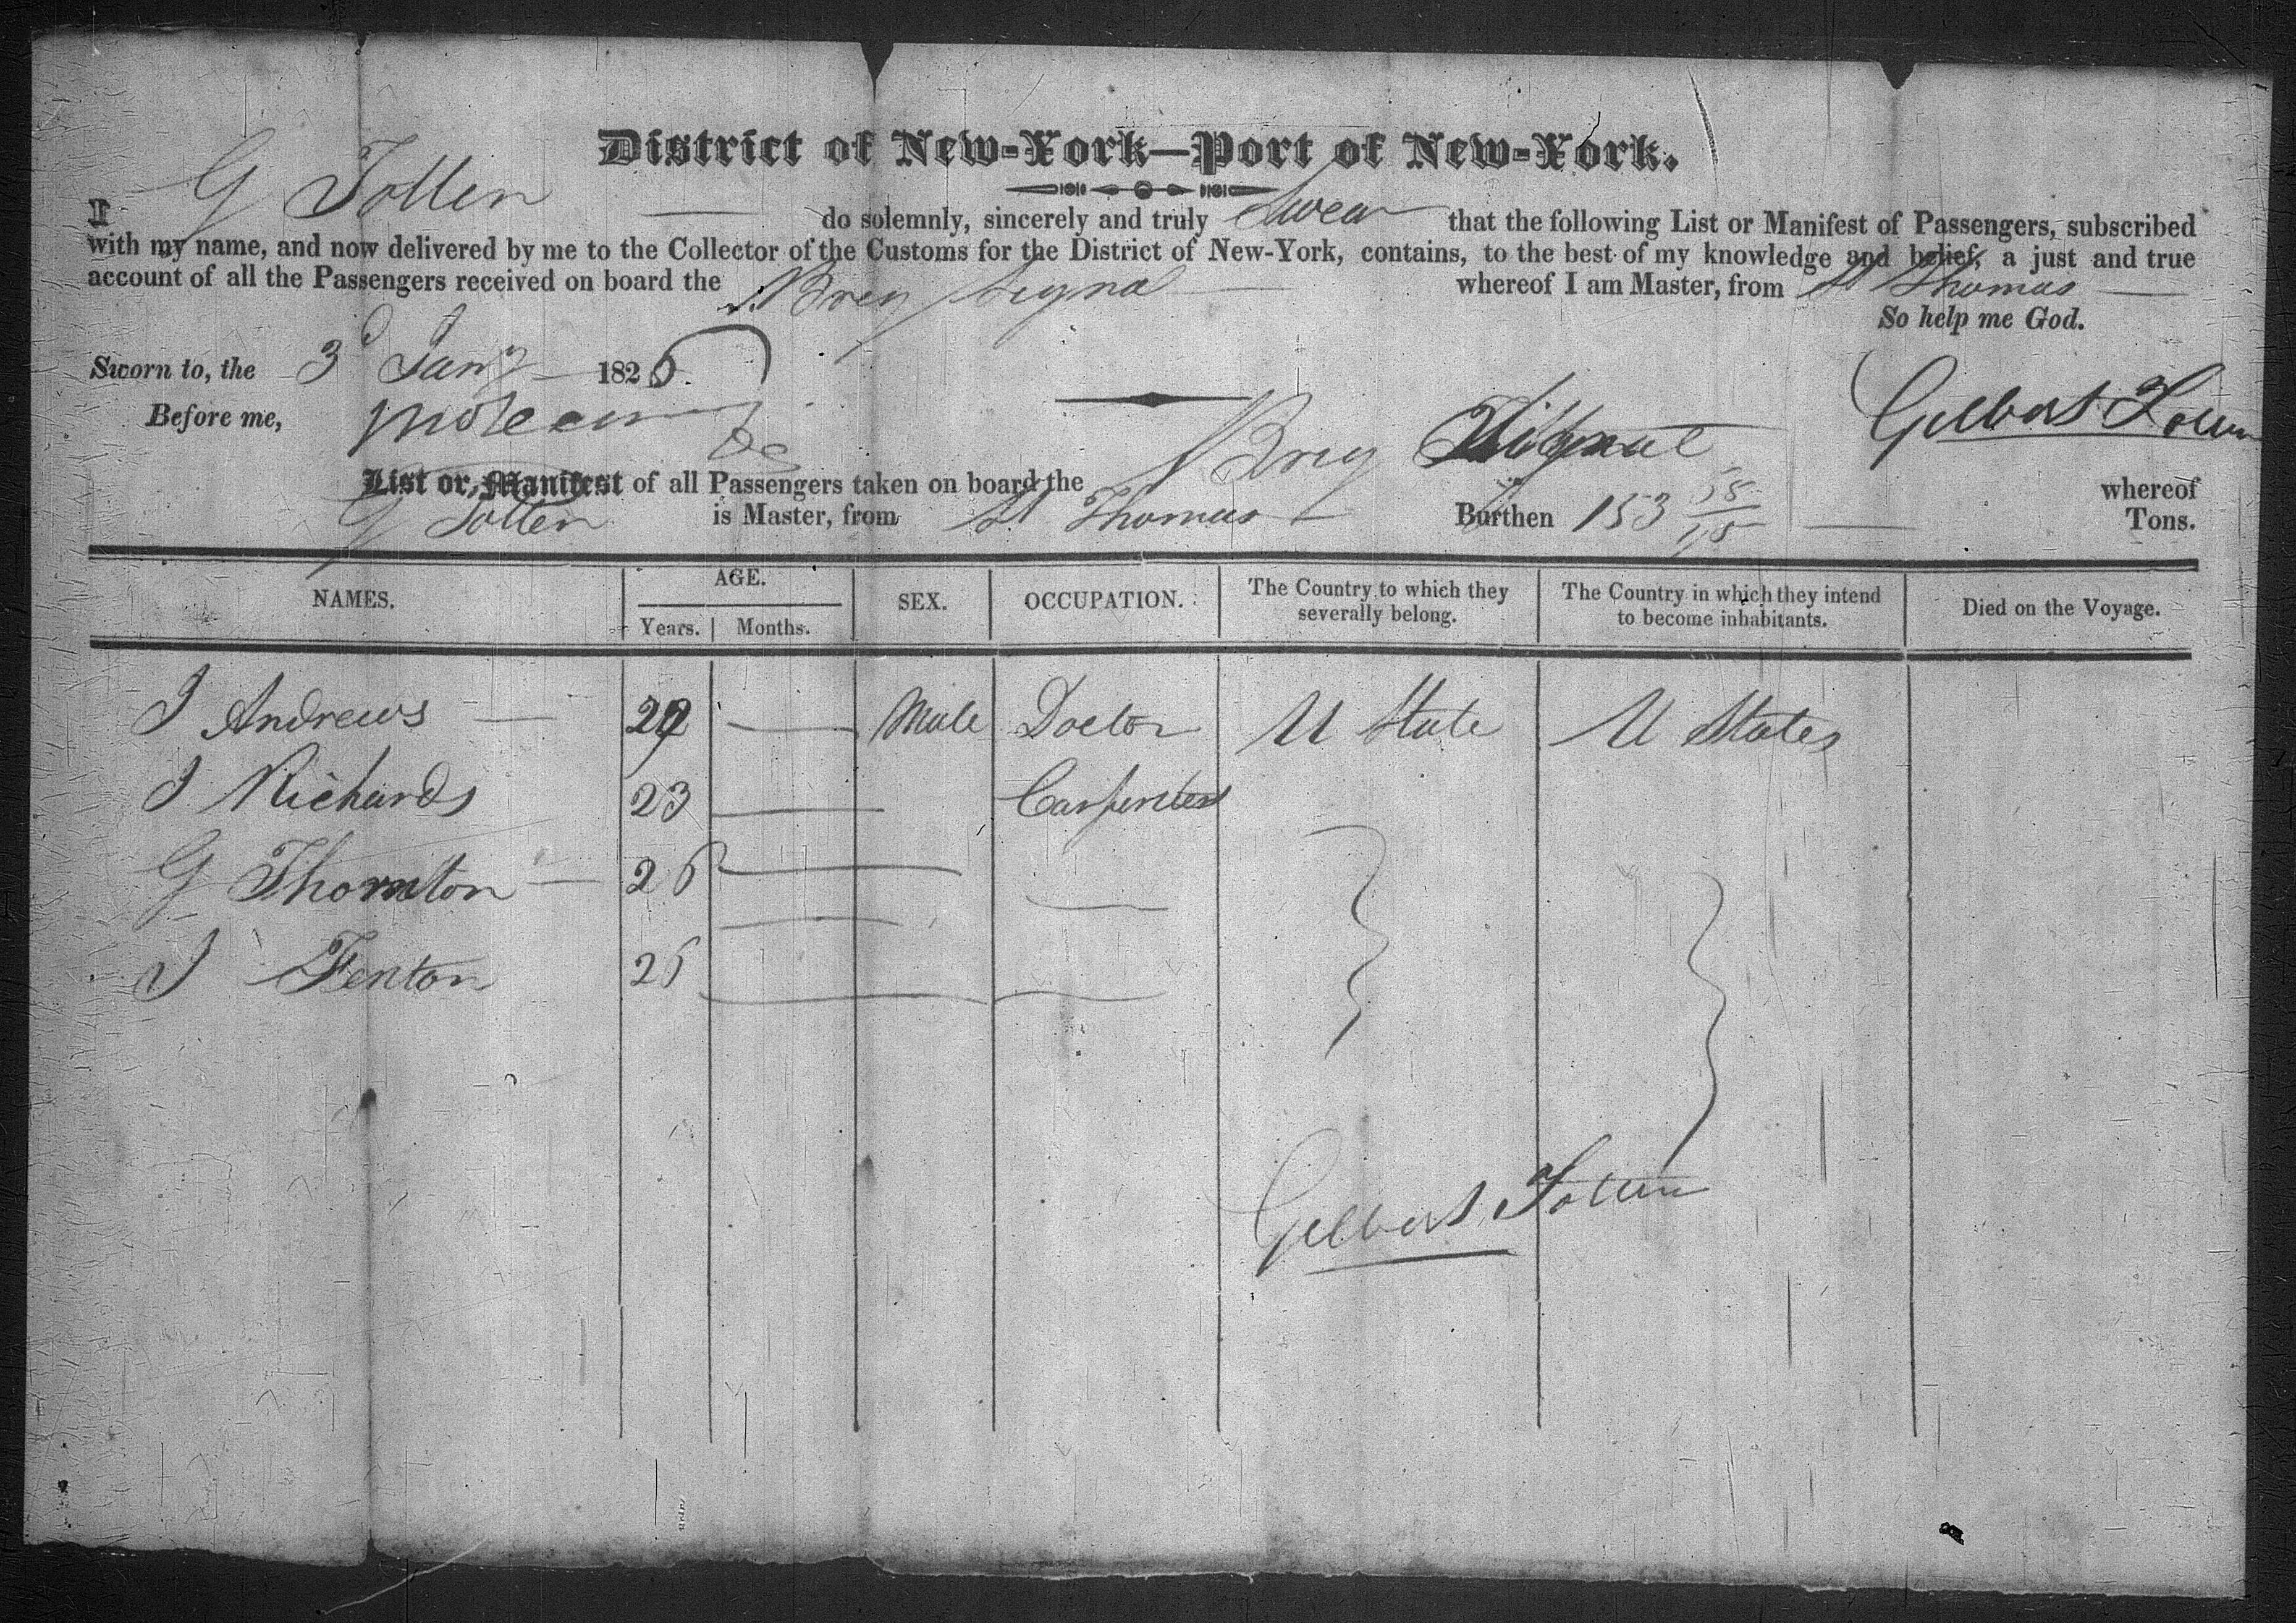 District of New-York—Port of New-York.
I G Totten do solemnly, sincerely and truly Swear that the following List or Manifest of Passengers, subscribed
with my name, and now delivered by me to the Collector of the Customs for the District of New-York, contains, to the best of my knowledge and belief, a just and true
account of all the Passengers received on board the Brig Signal whereof I am Master, from St Thomas
So help me God.
Sworn to, the 3d Jany 1826
Before me,
Gilbert Totten
List or Manifest of all Passengers taken on board the Brig Signal whereof
G Totten is Master, from St Thomas Burthen 153 Tons.
NAMES. AGE. SEX. OCCUPATION. The Country to which they severally belong. The Country in which they intend to become inhabitants. Died on the Voyage.
Years. Months.
J Andrews — 29 — Male Doctor U State U States
J Richards 23 — Carpenter
G Thornton — 26 —
J Fenton 25 —
Gilbert Totten